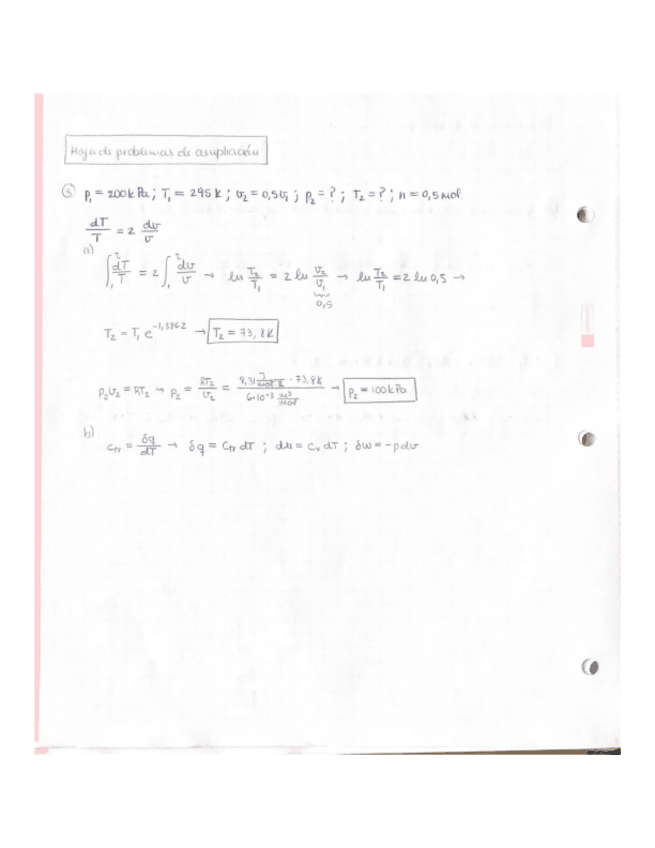 Hoja de problemas de ampliación
③ P₁ = 200 kPa ; T₁ = 295 K ; v₂ = 0,5v₁ ; p₂ = ? ; T₂ = ? ; n = 0,5 mol
dT/T = 2 dv/v
a)
∫₁² dT/T = 2 ∫₁² dv/v → ln T₂/T₁ = 2 ln v₂/v₁ → ln T₂/T₁ = 2 ln 0,5 →
0,5
T₂ = T₁ e^-1,3862 → T₂ = 73,8 K
p₂v₂ = RT₂ → p₂ = RT₂/v₂ = 8,31 J/mol·K · 73,8K / 6·10⁻³ m³/mol → p₂ = 100 kPa
b)
c_tr = δq/dT → δq = c_tr dT ; du = c_v dT ; δw = -pdv